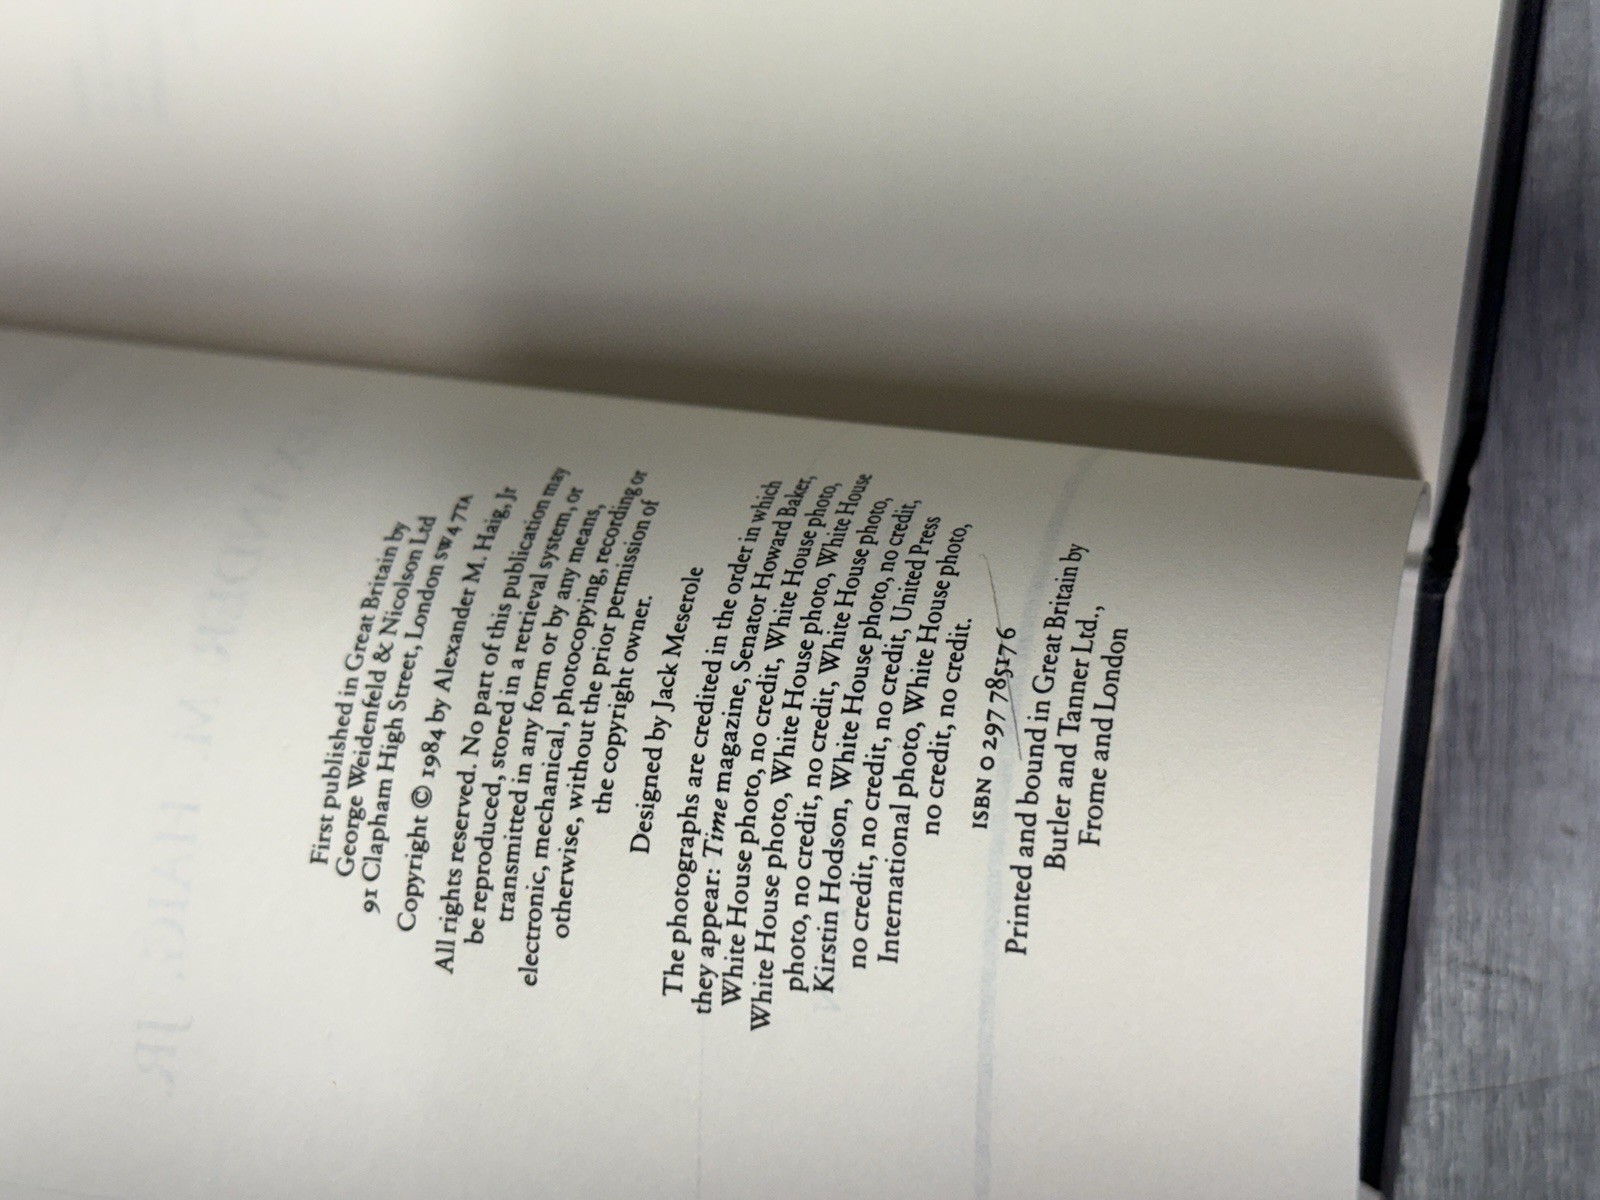 First published in Great Britain by
George Weidenfeld & Nicolson Ltd
91 Clapham High Street, London SW4 7TA
Copyright © 1984 by Alexander M. Haig, Jr
All rights reserved. No part of this publication may
be reproduced, stored in a retrieval system, or
transmitted in any form or by any means,
electronic, mechanical, photocopying, recording or
otherwise, without the prior permission of
the copyright owner.
Designed by Jack Meserole
The photographs are credited in the order in which
they appear: Time magazine, Senator Howard Baker,
White House photo, no credit, White House photo,
White House photo, White House photo, White House
photo, no credit, no credit, White House photo,
Kirstin Hodson, White House photo, no credit,
no credit, no credit, no credit, United Press
International photo, White House photo,
no credit, no credit.
ISBN 0 297 785176
Printed and bound in Great Britain by
Butler and Tanner Ltd.,
Frome and London